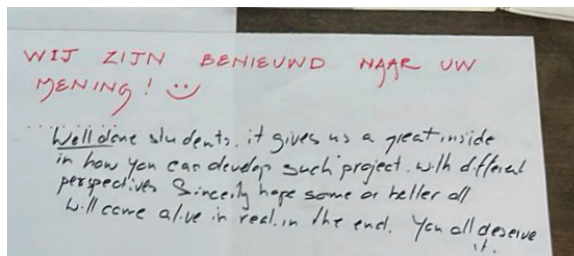 WIJ ZIJN BENIEUWD NAAR UW
MENING! :)
Welldone students. it gives us a great inside
in how you can develop such project. with different
perspectives Sincerily hope some or better all
will come alive in real. in the end. You all deserve
it.